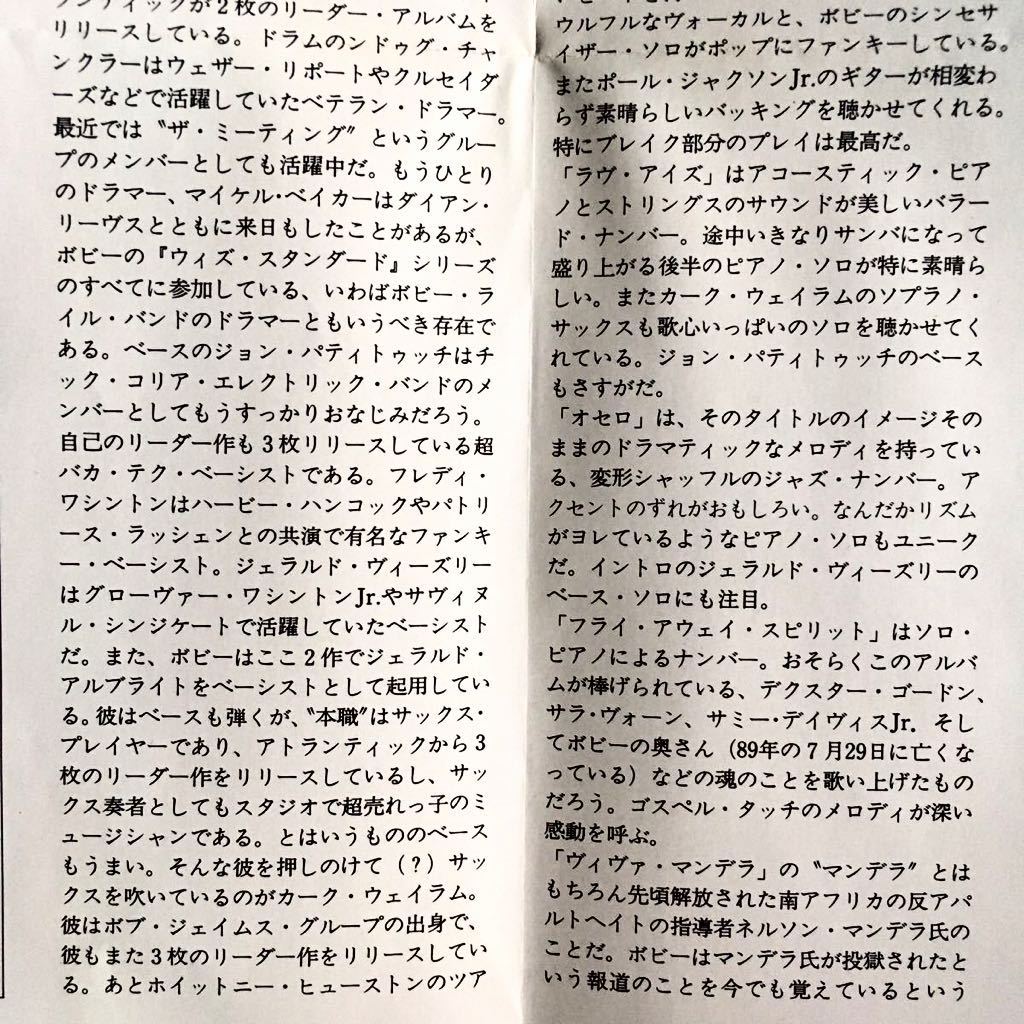 ランティックが2枚のリーダー・アルバムを
リリースしている。ドラムのンドゥグ・チャ
ンクラーはウェザー・リポートやクルセイダ
ーズなどで活躍していたベテラン・ドラマー。
最近では〝ザ・ミーティング〟というグルー
プのメンバーとしても活躍中だ。もうひとり
のドラマー、マイケル・ベイカーはダイアン・
リーヴスとともに来日もしたことがあるが、
ボビーの『ウィズ・スタンダード』シリーズ
のすべてに参加している、いわばボビー・ラ
イル・バンドのドラマーともいうべき存在で
ある。ベースのジョン・パティトゥッチはチ
ック・コリア・エレクトリック・バンドのメ
ンバーとしてもうすっかりおなじみだろう。
自己のリーダー作も3枚リリースしている超
バカ・テク・ベーシストである。フレディ・
ワシントンはハービー・ハンコックやパトリ
ース・ラッシェンとの共演で有名なファンキ
ー・ベーシスト。ジェラルド・ヴィーズリー
はグローヴァー・ワシントンJr.やサヴィヌ
ル・シンジケートで活躍していたベーシスト
だ。また、ボビーはここ2作でジェラルド・
アルブライトをベーシストとして起用してい
る。彼はベースも弾くが、〝本職〟はサックス・
プレイヤーであり、アトランティックから3
枚のリーダー作をリリースしているし、サッ
クス奏者としてもスタジオで超売れっ子のミ
ュージシャンである。とはいうもののベース
もうまい。そんな彼を押しのけて（？）サッ
クスを吹いているのがカーク・ウェイラム。
彼はボブ・ジェイムス・グループの出身で、
彼もまた3枚のリーダー作をリリースしてい
る。あとホイットニー・ヒューストンのツア
ウルフルなヴォーカルと、ボビーのシンセサ
イザー・ソロがポップにファンキーしている。
またポール・ジャクソンJr.のギターが相変わ
らず素晴らしいバッキングを聴かせてくれる。
特にブレイク部分のプレイは最高だ。
「ラヴ・アイズ」はアコースティック・ピア
ノとストリングスのサウンドが美しいバラー
ド・ナンバー。途中いきなりサンバになって
盛り上がる後半のピアノ・ソロが特に素晴ら
しい。またカーク・ウェイラムのソプラノ・
サックスも歌心いっぱいのソロを聴かせてく
れている。ジョン・パティトゥッチのベース
もさすがだ。
「オセロ」は、そのタイトルのイメージその
ままのドラマティックなメロディを持ってい
る、変形シャッフルのジャズ・ナンバー。ア
クセントのずれがおもしろい。なんだかリズム
がヨレているようなピアノ・ソロもユニーク
だ。イントロのジェラルド・ヴィーズリーの
ベース・ソロにも注目。
「フライ・アウェイ・スピリット」はソロ・
ピアノによるナンバー。おそらくこのアルバ
ムが棒げられている、デクスター・ゴードン、
サラ・ヴォーン、サミー・デイヴィスJr. そし
てボビーの奥さん（89年の7月29日に亡くな
っている）などの魂のことを歌い上げたもの
だろう。ゴスペル・タッチのメロディが深い
感動を呼ぶ。
「ヴィヴァ・マンデラ」の〝マンデラ〟とは
もちろん先頃解放された南アフリカの反アパ
ルトヘイトの指導者ネルソン・マンデラ氏の
ことだ。ボビーはマンデラ氏が投獄されたと
いう報道のことを今でも覚えているという